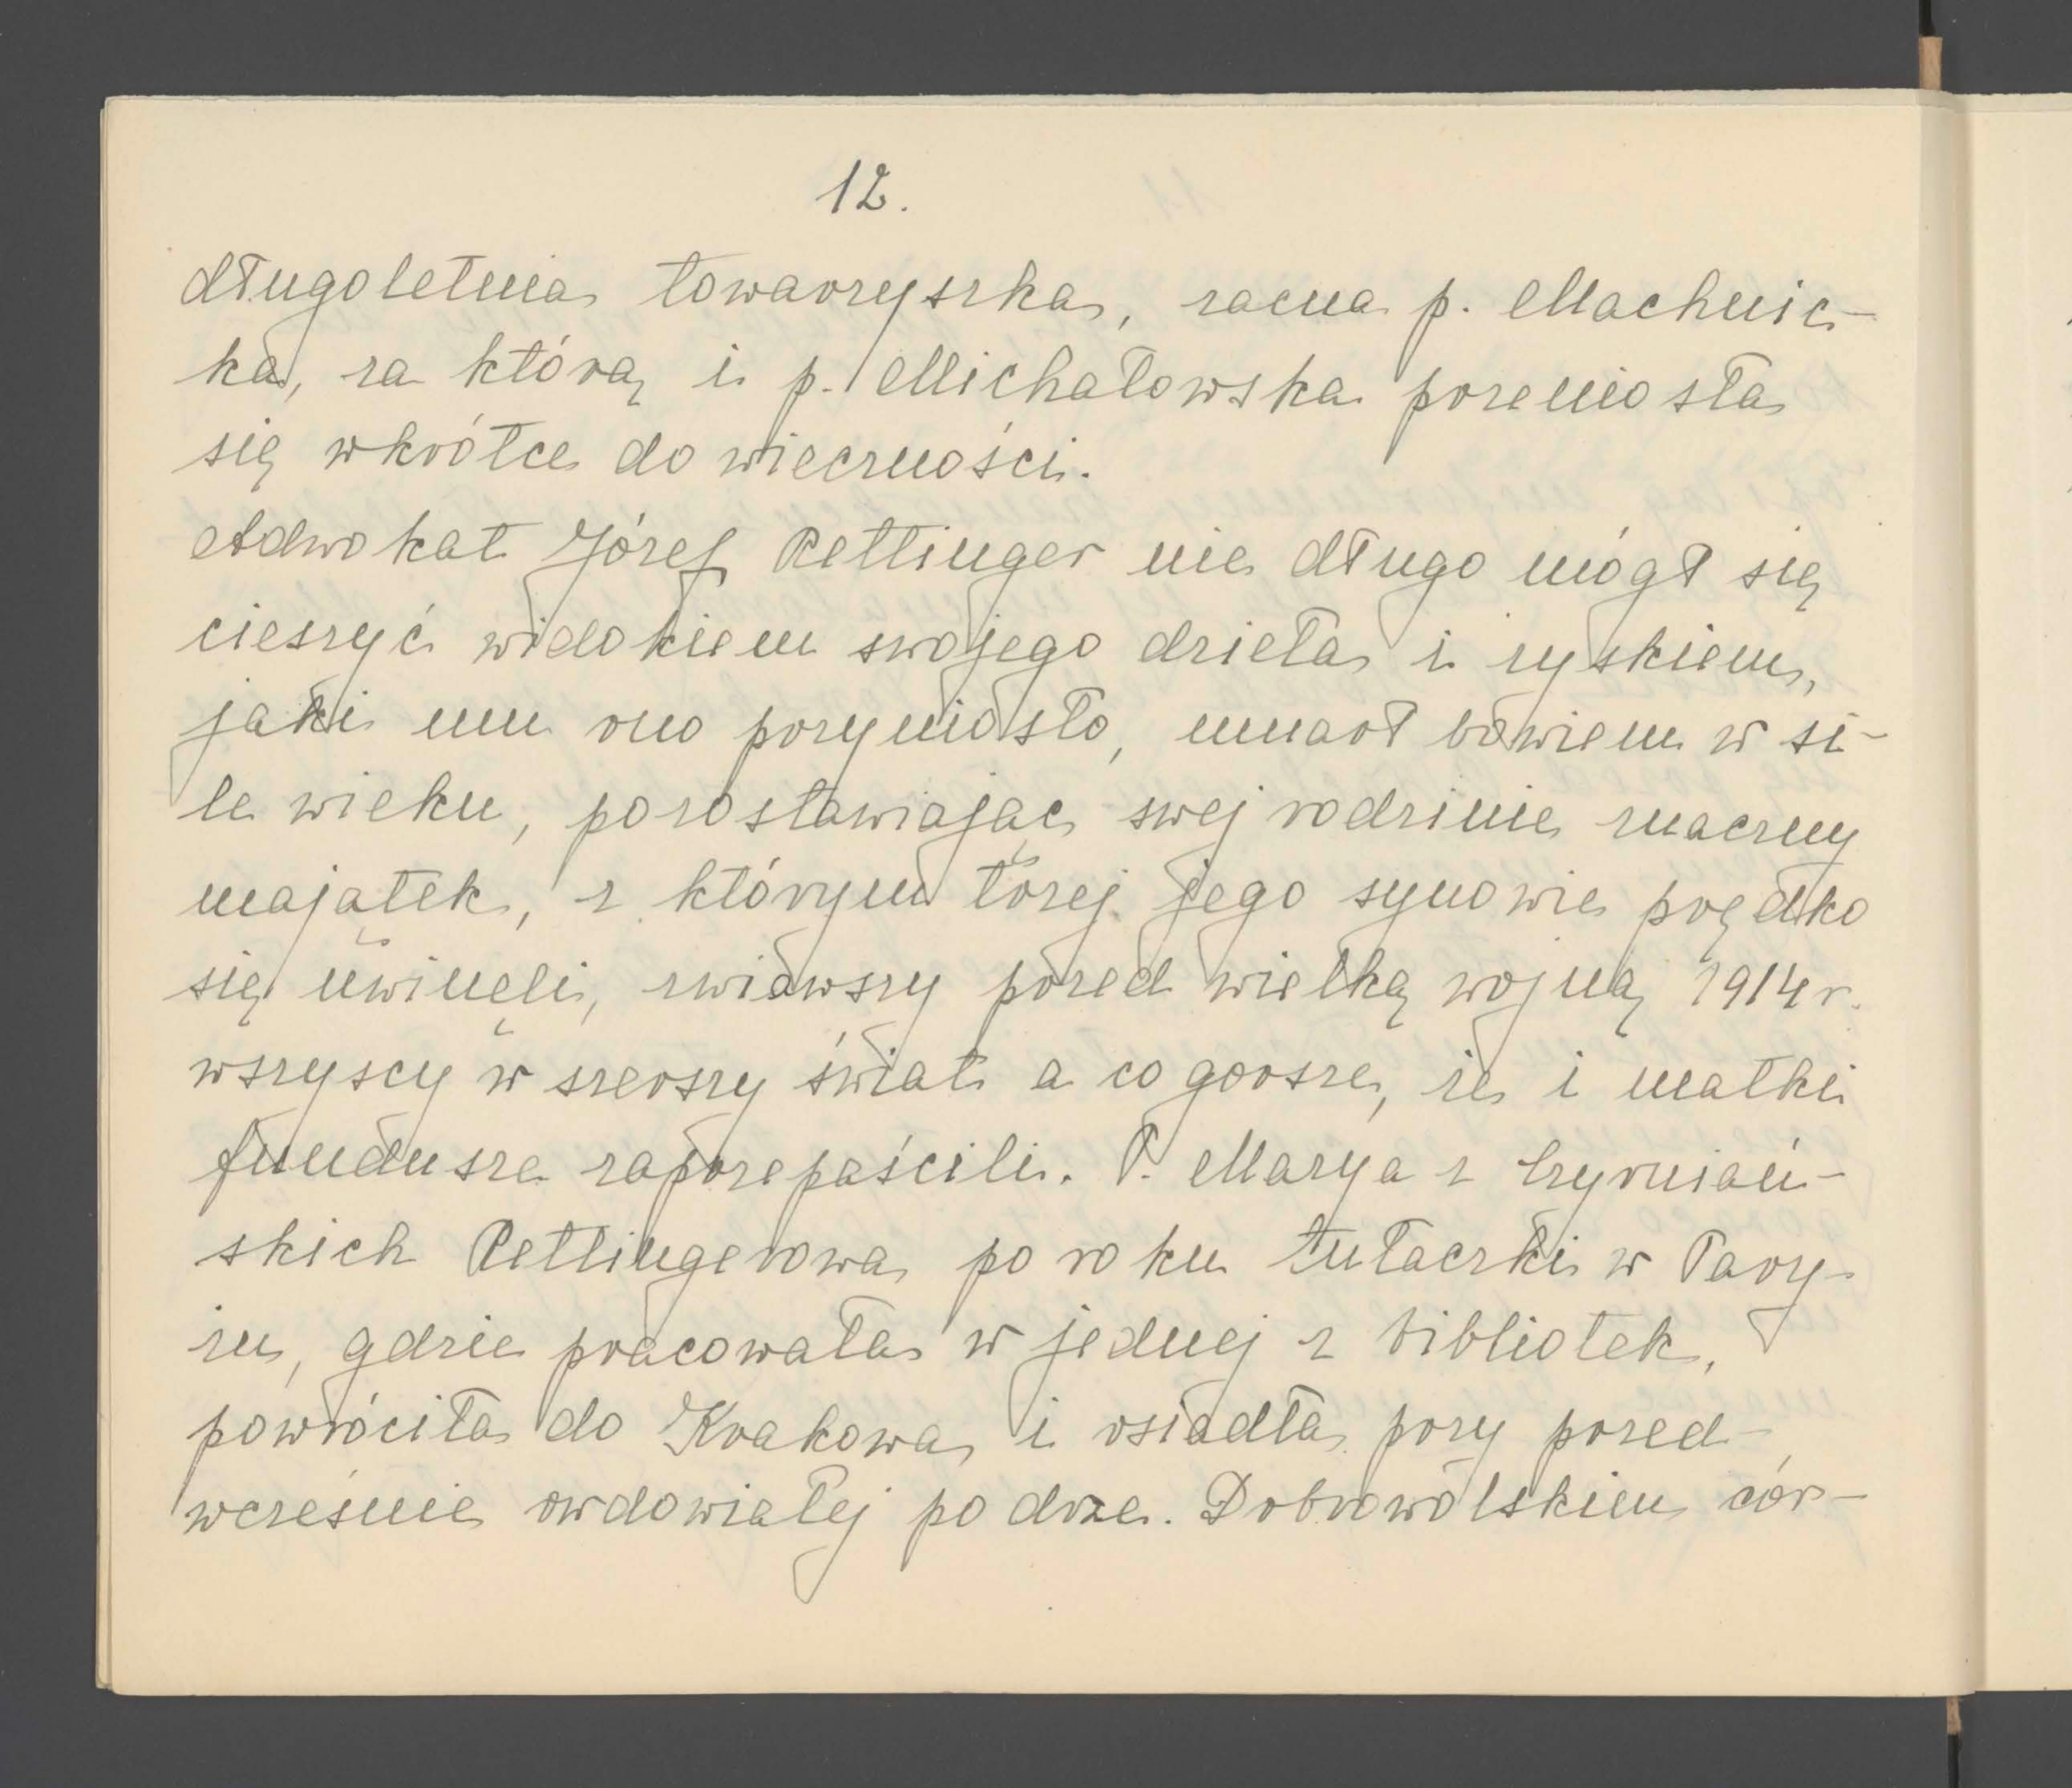 12.
długoletnia towarzyszka, zacna p. Machnic-
ka, za którą i p. Michałowska przeniosła
się wkrótce do wieczności.
Adwokat Józef Rettinger nie długo mógł się
cieszyć widokiem swojego dzieła i zyskiem,
jaki mu ono przyniosło, umarł bowiem w si-
le wieku, pozostawiając swej rodzinie znaczny
majątek, z którym tożej jego synowie prędko
się uwinęli, zwiawszy przed wielką wojną 1914 r.
wszyscy w szerszy świat a co gorsze, że i matki
fundusze zaprzepaścili. P. Marya z Czyrniań-
skich Rettingerowa po roku tułaczki w Pary-
żu, gdzie pracowała w jednej z bibliotek,
powróciła do Krakowa i osiadła przy przed-
wcześnie owdowiałej po drze. Dobrowolskim cór-